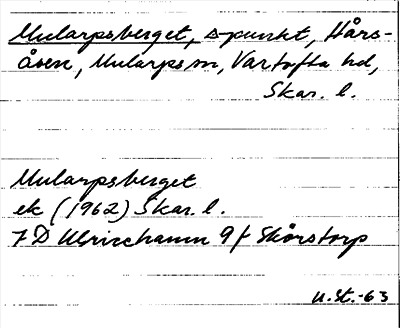 Mularpsberget, s-punkt, Hårs-
åsen, Mularps sn, Vartofta hd,
Skar. l.
Mularpsberget
ek (1962) Skar. l.
7 D Ulricehamn 9 f Skörstorp
U.St.-63